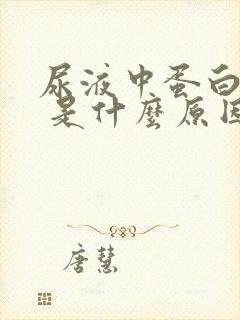 尿液中蛋白
是什麼原因
唐慧